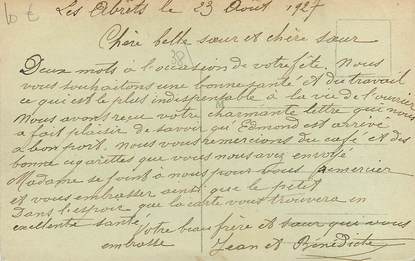 10 €
Les Abrets le 23 Août 1927
Chère belle sœur et chère sœur
38
Deux mots à l'occasion de votre fête. Nous
vous souhaitons une bonne santé et du travail
ce qui est le plus indispensable à la vie de l'ouvrier
Nous avons reçu votre charmante lettre qui nous
a fait plaisir de savoir qu Edmond est arrivé
à bon port. nous vous remercions du café et des
bonne cigarettes que vous nous avez envoyé
Madame se joint à nous pour vous remercier
et vous embrasser ainsi que le petit
Dans l'espoir que la carte vous trouvera en
excellente santé.
Votre beau frère et sœur qui vous
embrasse Jean et Bénédicte